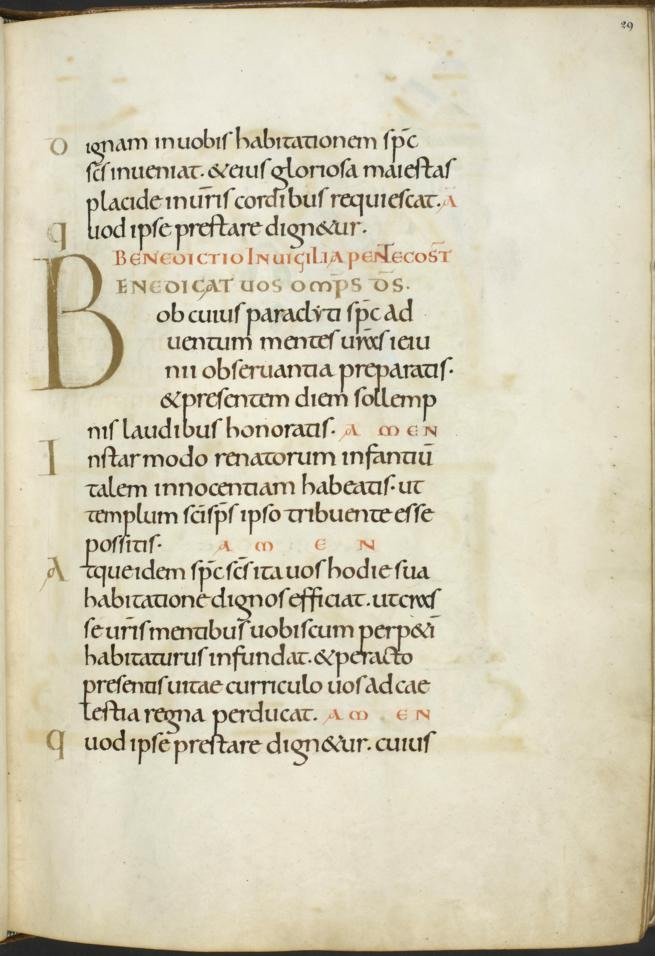 29
Dignam inuobis habitationem sp̄c
sc̄s inueniat. &eius gloriosa maiestas
placide inur̄is cordibus requiescat. A
quod ipse prestare dign&ur.
BENEDICTIO IN UIGILIA PENTECOST̄
BENEDICAT UOS OMP̄S D̄S.
ob cuius paraclyti sp̄c ad
uentum mentes urās ieiu
nii obseruantia preparatis.
&presentem diem sollemp
nis laudibus honoratis. A M E N
Instar modo renatorum infantiū
talem innocentiam habeatis. ut
templum sc̄i sp̄s ipso tribuente esse
possitis. A M E N
Atque idem sp̄c sc̄s ita uos hodie sua
habitatione dignos efficiat. ut cras
se ur̄is mentibus uobiscum perp&i
habitaturus infundat. &peracto
presentis uitae curriculo uos ad cae
lestia regna perducat. A M E N
quod ipse prestare dign&ur. cuius